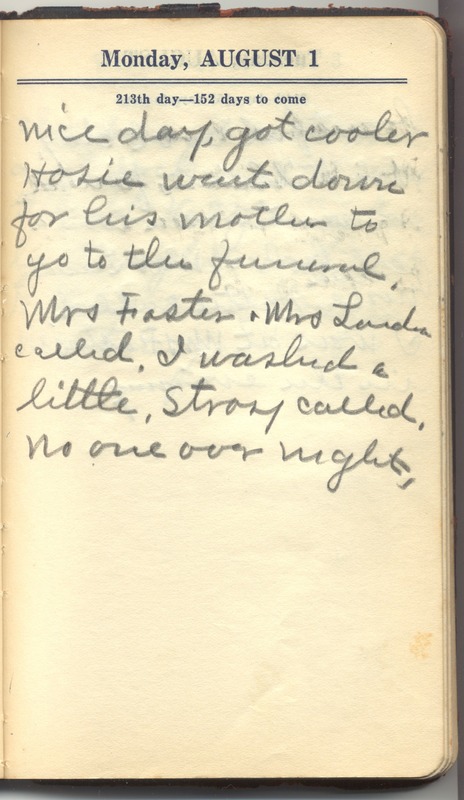 Monday, AUGUST 1
213th day—152 days to come
nice day, got cooler
Hosie went down
for his mother to
go to the funeral.
Mrs Foster + Mrs
called. I washed a
little, called.
no one over night,